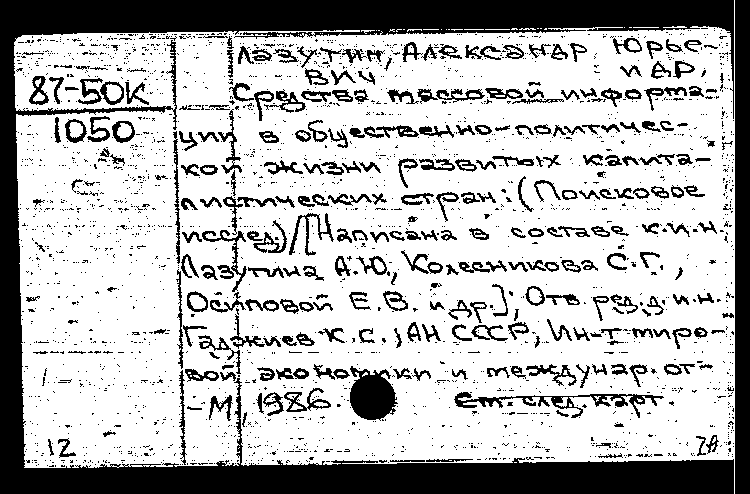 Лазутин, Александр Юрье-
вич и др.
87-50К
Средства массовой информа-
1050
ции в общественно-политичес-
кой жизни развитых капита-
листических стран: (Поисковое
исслед.)/[Написана в составе к.и.н
Лазутина А.Ю., Колесникова С.Г.,
Осиповой Е.В. и др.]; Отв. ред. д.и.н.
Гаджиев К.С.; АН СССР, Ин-т миро-
вой экономики и междунар. от-
-М., 1986. См. след. карт.
12